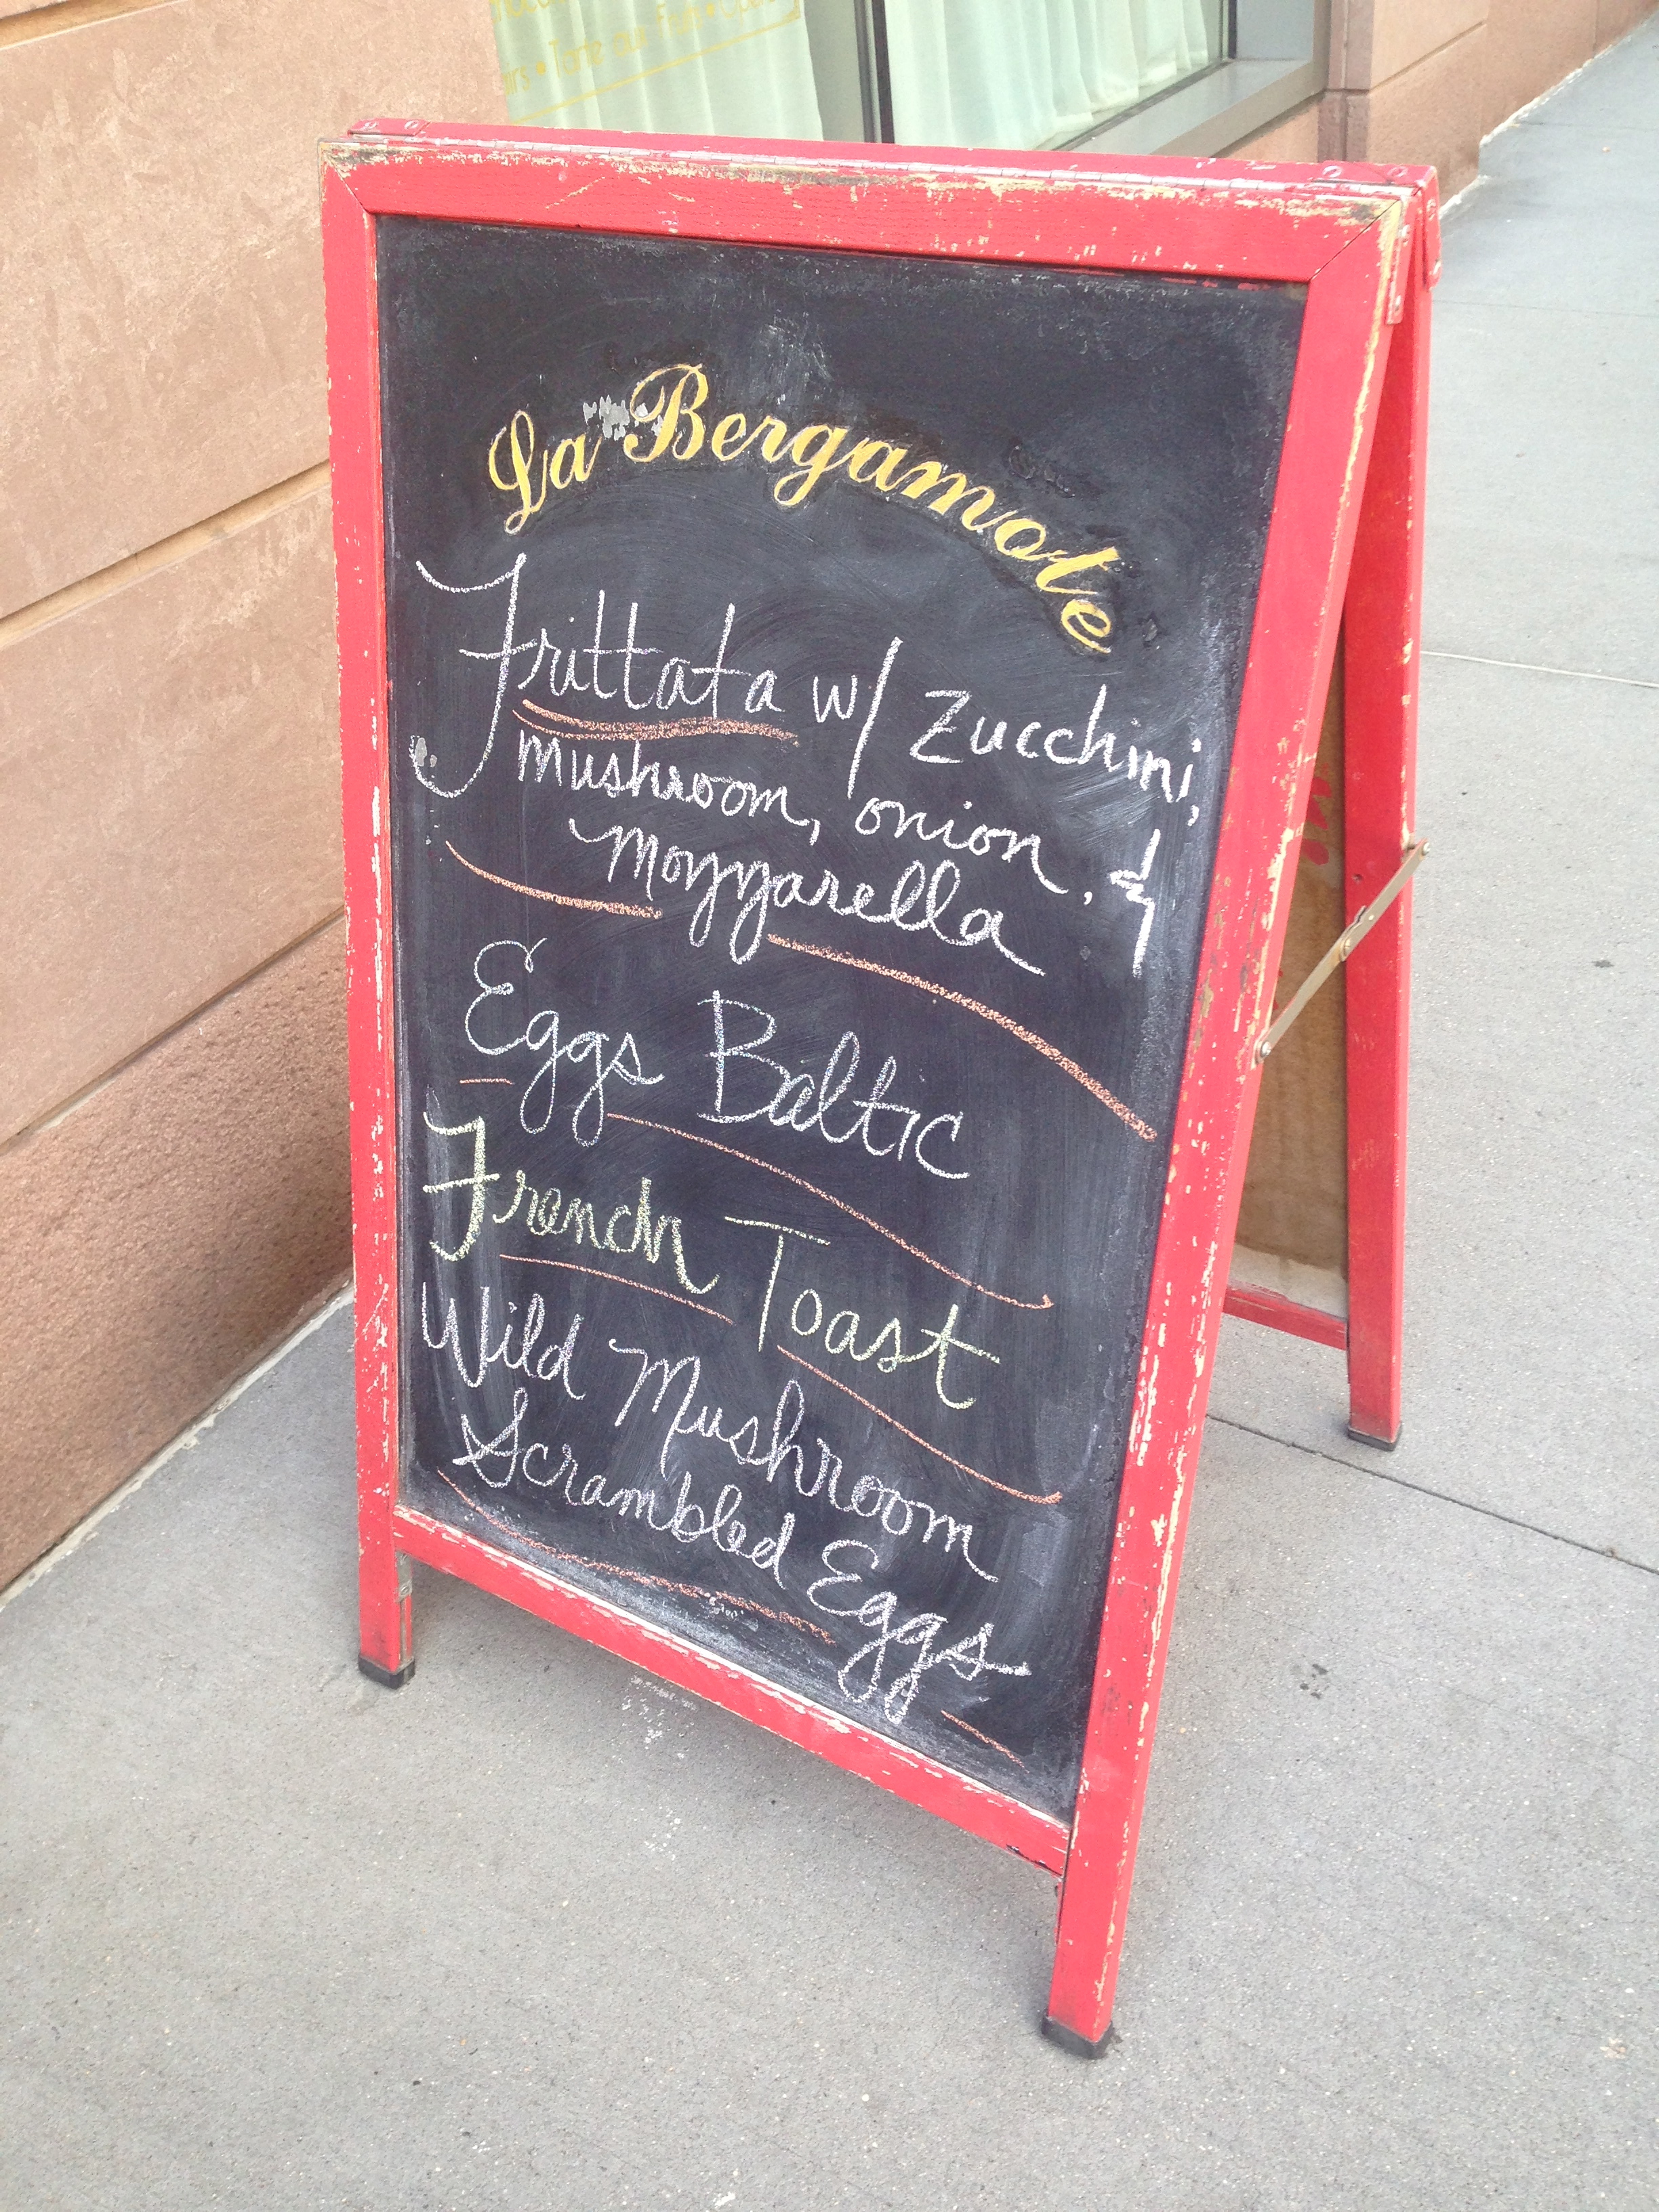 Taste our
La Bergamote
Frittata w/ Zucchini,
Mushroom, onion, &
Mozzarella
Eggs Baltic
French Toast
Wild Mushroom
Scrambled Eggs